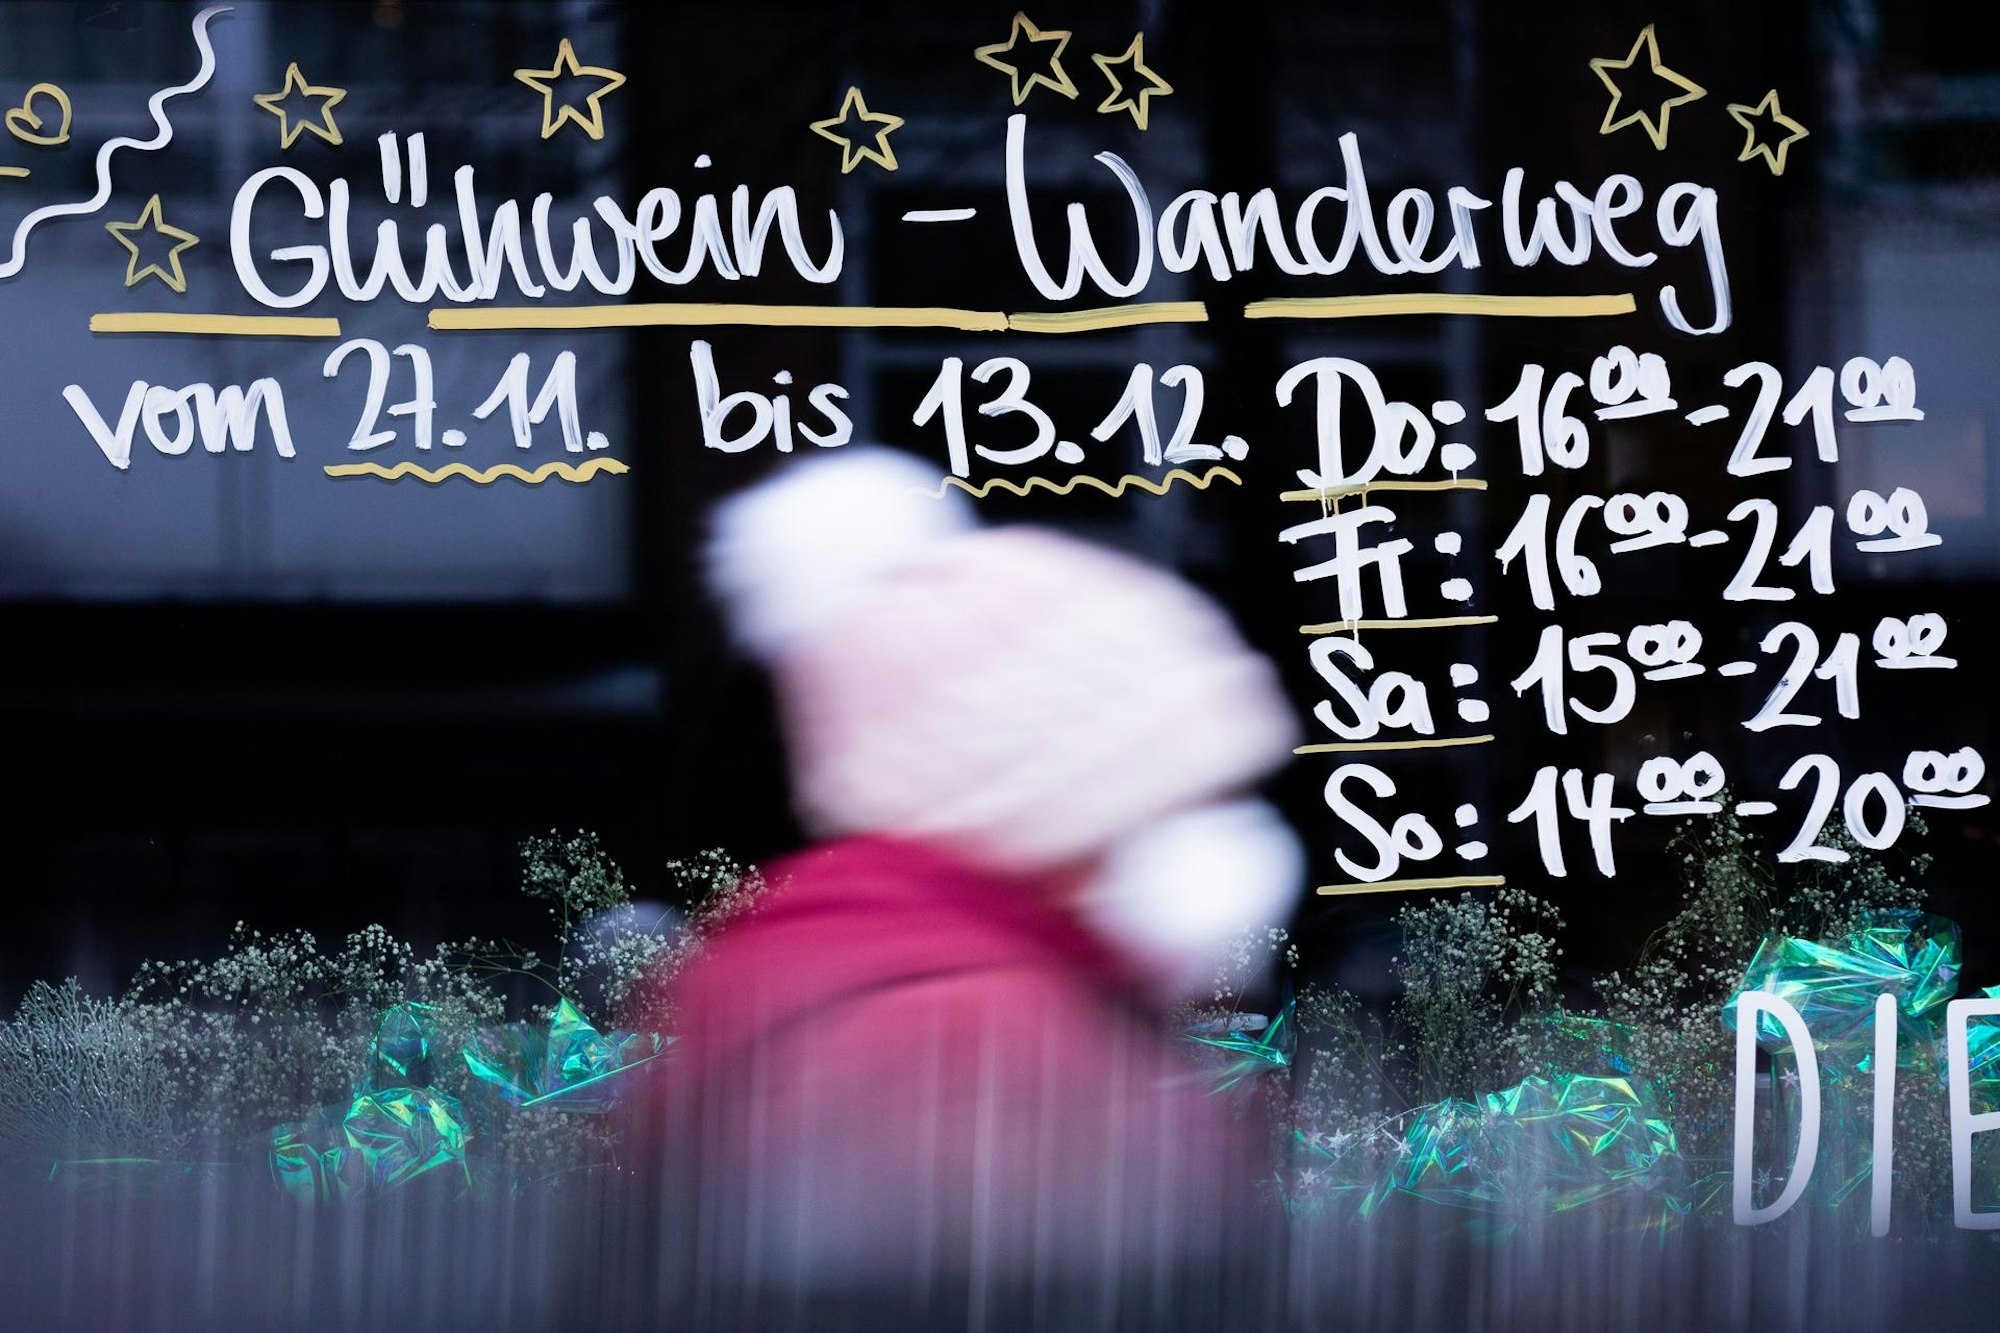 Glühwein - Wanderweg
vom 27.11. bis 13.12.
Do: 16⁰⁰-21⁰⁰
Fr: 16⁰⁰-21⁰⁰
Sa: 15⁰⁰-21⁰⁰
So: 14⁰⁰-20⁰⁰
DIE